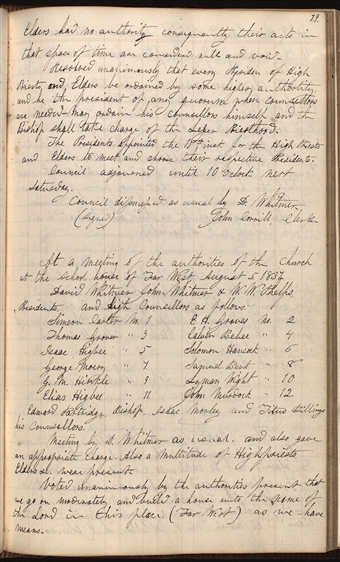 79.
Elders had no authority consequently their acts in
that space of time are considered null and void.
Resolved unanimously that every Presiden of High
Priests, and, Elders be ordained by some higher authority,
and he the president of any quorum when counsellors
are needed may ordain his counsellors himself and the
Bishop shall take charge of the Lesser Priesthood.
The Presidents appointed the inst for the High Priests
and Elders to meet and choose their respective Presidents.
Council adjourned until 10 Oclock next
Saturday.
Council dismissed as usual by D. Whitmer
(signed) John Corrill, Clerk
At a meeting of the authorities of the Church
at the school house of Far West, August 5 1837
David Whitmer John Whitmer & W. W. Phelps,
Presidents and High Counsellors as follows.
Simeon Carter No. 1 E. H. Groves No. 2
Thomas Grover " 3 Calvin Bebee " 4
Isaac Higbee " 5 Solomon Hancock " 6
George Morey " 7 " 8
G. M. Hinkle " 9 Lyman Wight " 10
Elias Higbee " 11 John Murdock 12
Edward Partridge Bishop, Isaac Morley and Titus Billings
his Counsellors.
Meeting by D. Whitmer as usual. and also gave
an appropriate Charge Also a multitude of High priests
Elders &c. were present
Voted Unanimously by the authorities present that
we go on moderately and build a house unto the name of
the Lord in this place (Far West) as we have
means.